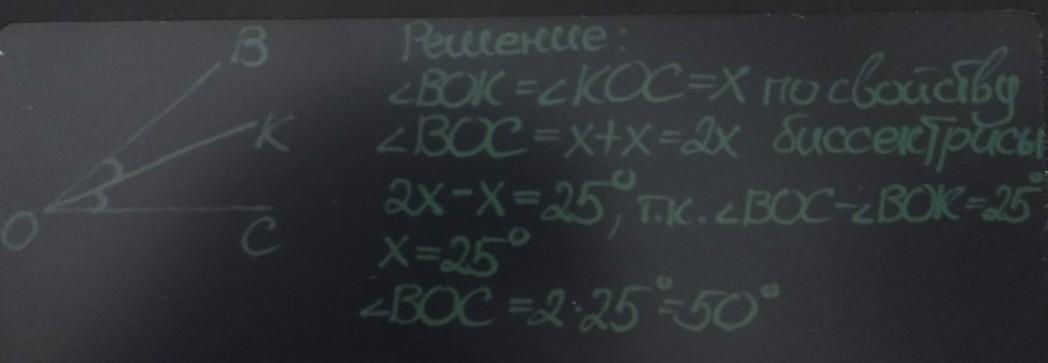 B
K
O
C
Решение:
∠BOK=∠KOC=x по свойству
∠BOC=x+x=2x биссектрисы
2x-x=25°, т.к. ∠BOC-∠BOK=25°
x=25°
∠BOC=2·25°=50°